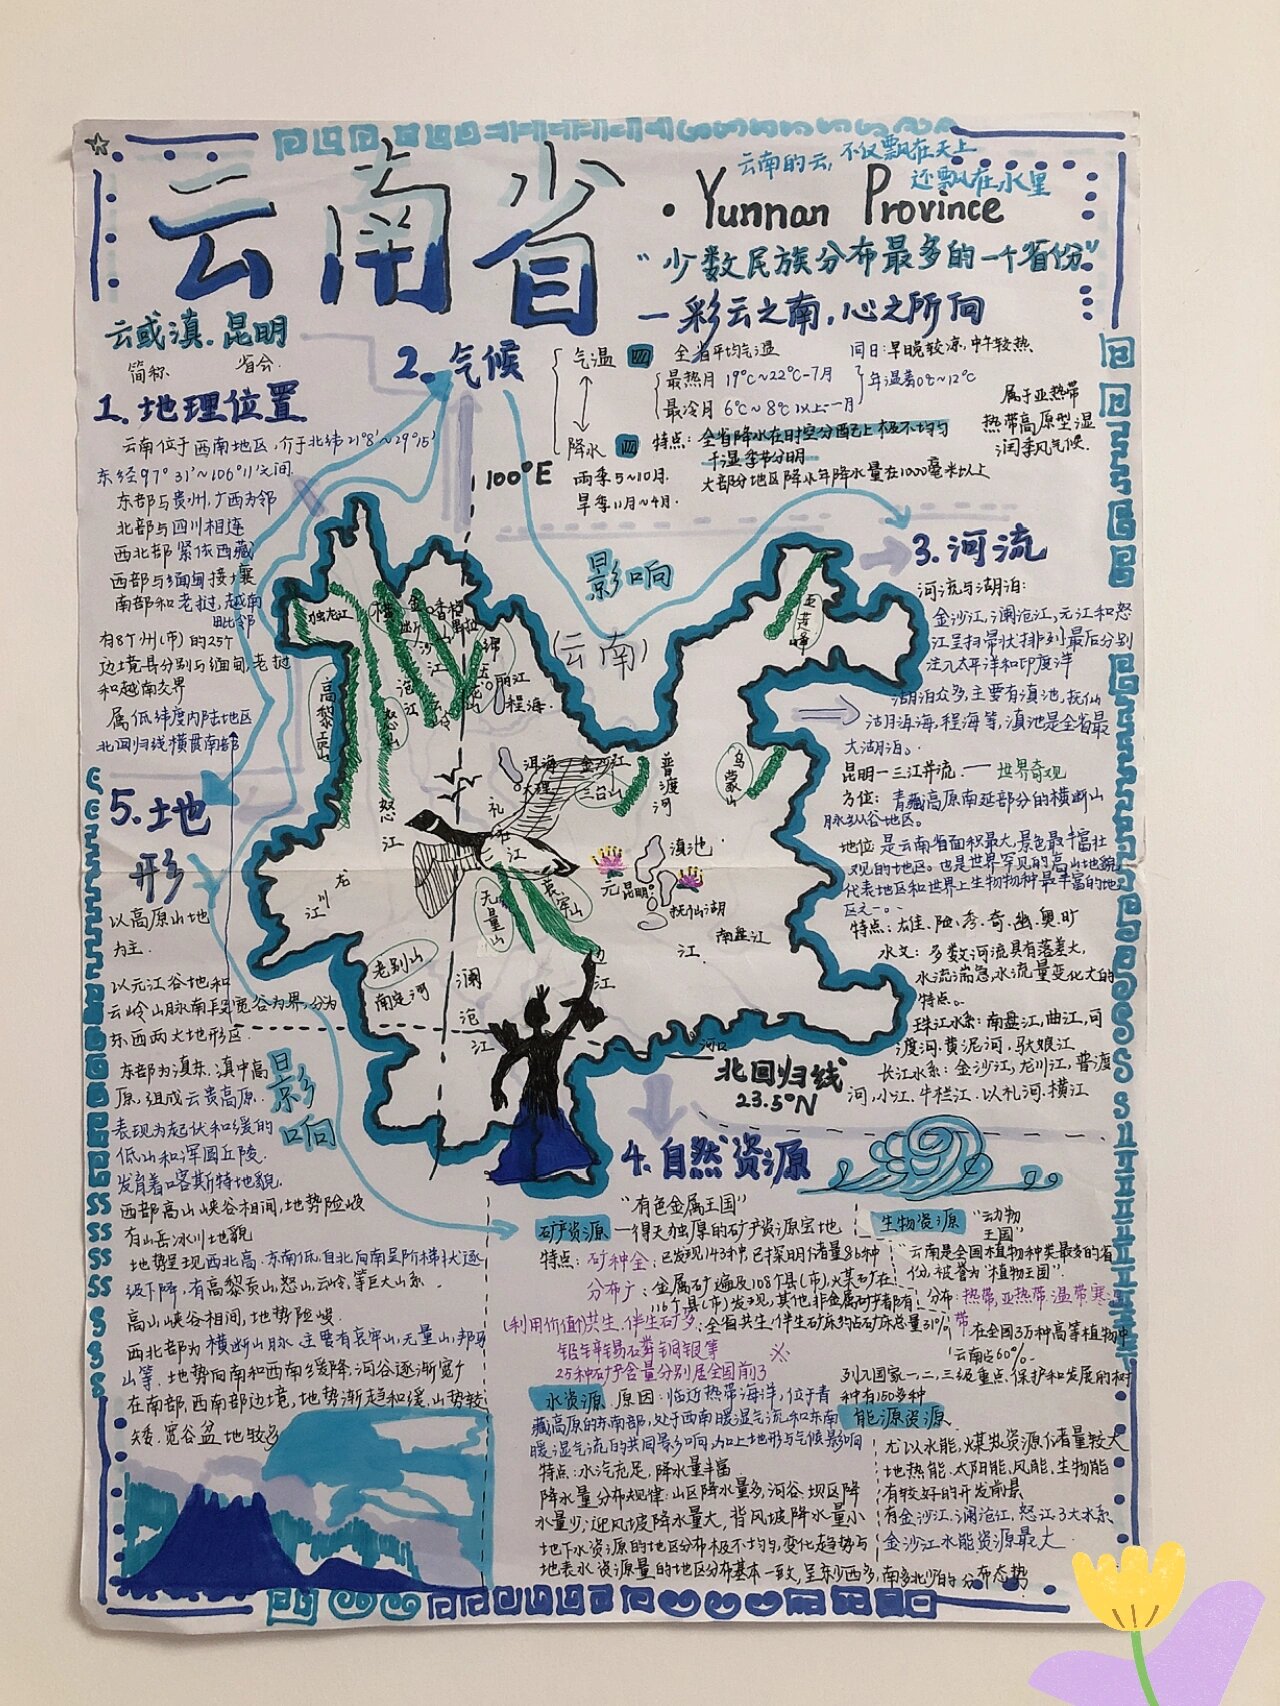 云南的云,不仅飘在天上
还飘在水里
云南省
·Yunnan Province
"少数民族分布最多的一个省份"
—彩云之南,心之所向
云或滇.昆明
简称 省会.
1.地理位置
云南位于西南地区,介于北纬21°8′~29°15′
东经97°31′~106°11′之间.
东部与贵州,广西为邻
北部与四川相连
西北部紧依西藏
西部与缅甸接壤
南部和老挝,越南
毗邻
有8个州(市)的25个
边境县分别与缅甸,老挝
和越南交界
属低纬度内陆地区
北回归线横贯南部
2.气候
气温
全省平均气温
最热月 19℃~22℃-7月
最冷月 6℃~8℃以上-一月
同日:早晚较凉,中午较热
年温差10℃~12℃
属于亚热带
热带高原型湿
润季风气候.
降水
特点:全省降水在时空分配上极不均匀
干湿季节分明
大部分地区降水年降水量在1000毫米以上
雨季5~10月.
旱季11月~4月.
100°E
影响
(云南)
3.河流
河流与湖泊:
金沙江,澜沧江,元江和怒
江呈扫帚状排列最后分别
注入太平洋和印度洋
湖泊众多,主要有滇池,抚仙
湖洱海,程海等,滇池是全省最
大湖泊。
昆明—三江并流.—世界奇观
方位:青藏高原南延部分的横断山
脉纵谷地区。
地位是云南省面积最大,景色最丰富壮
观的地区。也是世界罕见的高山地貌
代表地区和世界上生物物种最丰富的地
区之一。
特点:雄.险.秀.奇.幽.奥.旷
水文:多数河流具有落差大,
水流湍急,水流量变化大的
特点。
珠江水系:南盘江,曲江,可
渡河.黄泥河.驮娘江
长江水系:金沙江,龙川江,普渡
河,小江.牛栏江.以礼河.横江
独龙江
横
断
山
金
沙
江
香格
里拉
丽江
程海
高黎贡山
怒山
怒
江
洱海
大理
礼
社
江
金沙江
三台山
普渡河
乌蒙山
五莲峰
滇池
元
昆明
抚仙湖
南盘江
江
龙
川
江
无量山
哀牢山
老别山
南定河
澜
沧
江
江
河口
北回归线
23.5°N
5.土地
形
以高原山地
为主.
以元江谷地和
云岭山脉南段宽谷为界,分为
东西两大地形区.
东部为滇东.滇中高
原,组成云贵高原.
表现为起伏和缓的
低山和浑圆丘陵.
发育着喀斯特地貌.
影响
西部高山峡谷相间,地势险峻
有山岳冰川地貌
地势呈现西北高.东南低,自北向南呈阶梯状逐
级下降,有高黎贡山,怒山,云岭,等巨大山系.
高山峡谷相间,地势险峻.
西北部为横断山脉.主要有哀牢山,无量山,邦马
山等.地势向南和西南缓降,河谷逐渐宽广
在南部,西南部边境,地势渐趋和缓,山势较
矮.宽谷盆地较多
4.自然资源
"有色金属王国"
矿产资源 —得天独厚的矿产资源宝地
特点:矿种全:已发现143种,已探明储量86种
分布广:金属矿遍及108个县(市),煤矿在
116个县(市)发现,其他非金属矿产都有
(利用价值)共生.伴生矿多:全省共生,伴生矿床约占矿床总量31%
铅锌锡磷铜银等
25种矿产含量分别居全国前3
水资源 原因:临近热带海洋,位于青
藏高原的东南部,处于西南暖湿气流和东南
暖湿气流的共同影响,加上地形与气候影响
特点:水汽充足,降水量丰富
降水量分布规律:山区降水量多,河谷.坝区降
水量少;迎风坡降水量大,背风坡降水量小
地下水资源的地区分布极不均匀,变化趋势与
地表水资源量的地区分布基本一致,呈东少西多,南多北少的分布态势
生物资源 "动物
王国"
"云南是全国植物种类最多的省
份,被誉为"植物王国".
分布:热带,亚热带.温带寒温
带 在全国3万种高等植物中
云南占60%.
列入国家一,二,三级重点.保护和发展的树
种有150多种
能源资源
尤以水能,煤炭资源储量较大
地热能.太阳能,风能,生物能
有较好的开发前景
有金沙江.澜沧江,怒江3大水系
金沙江水能资源最大